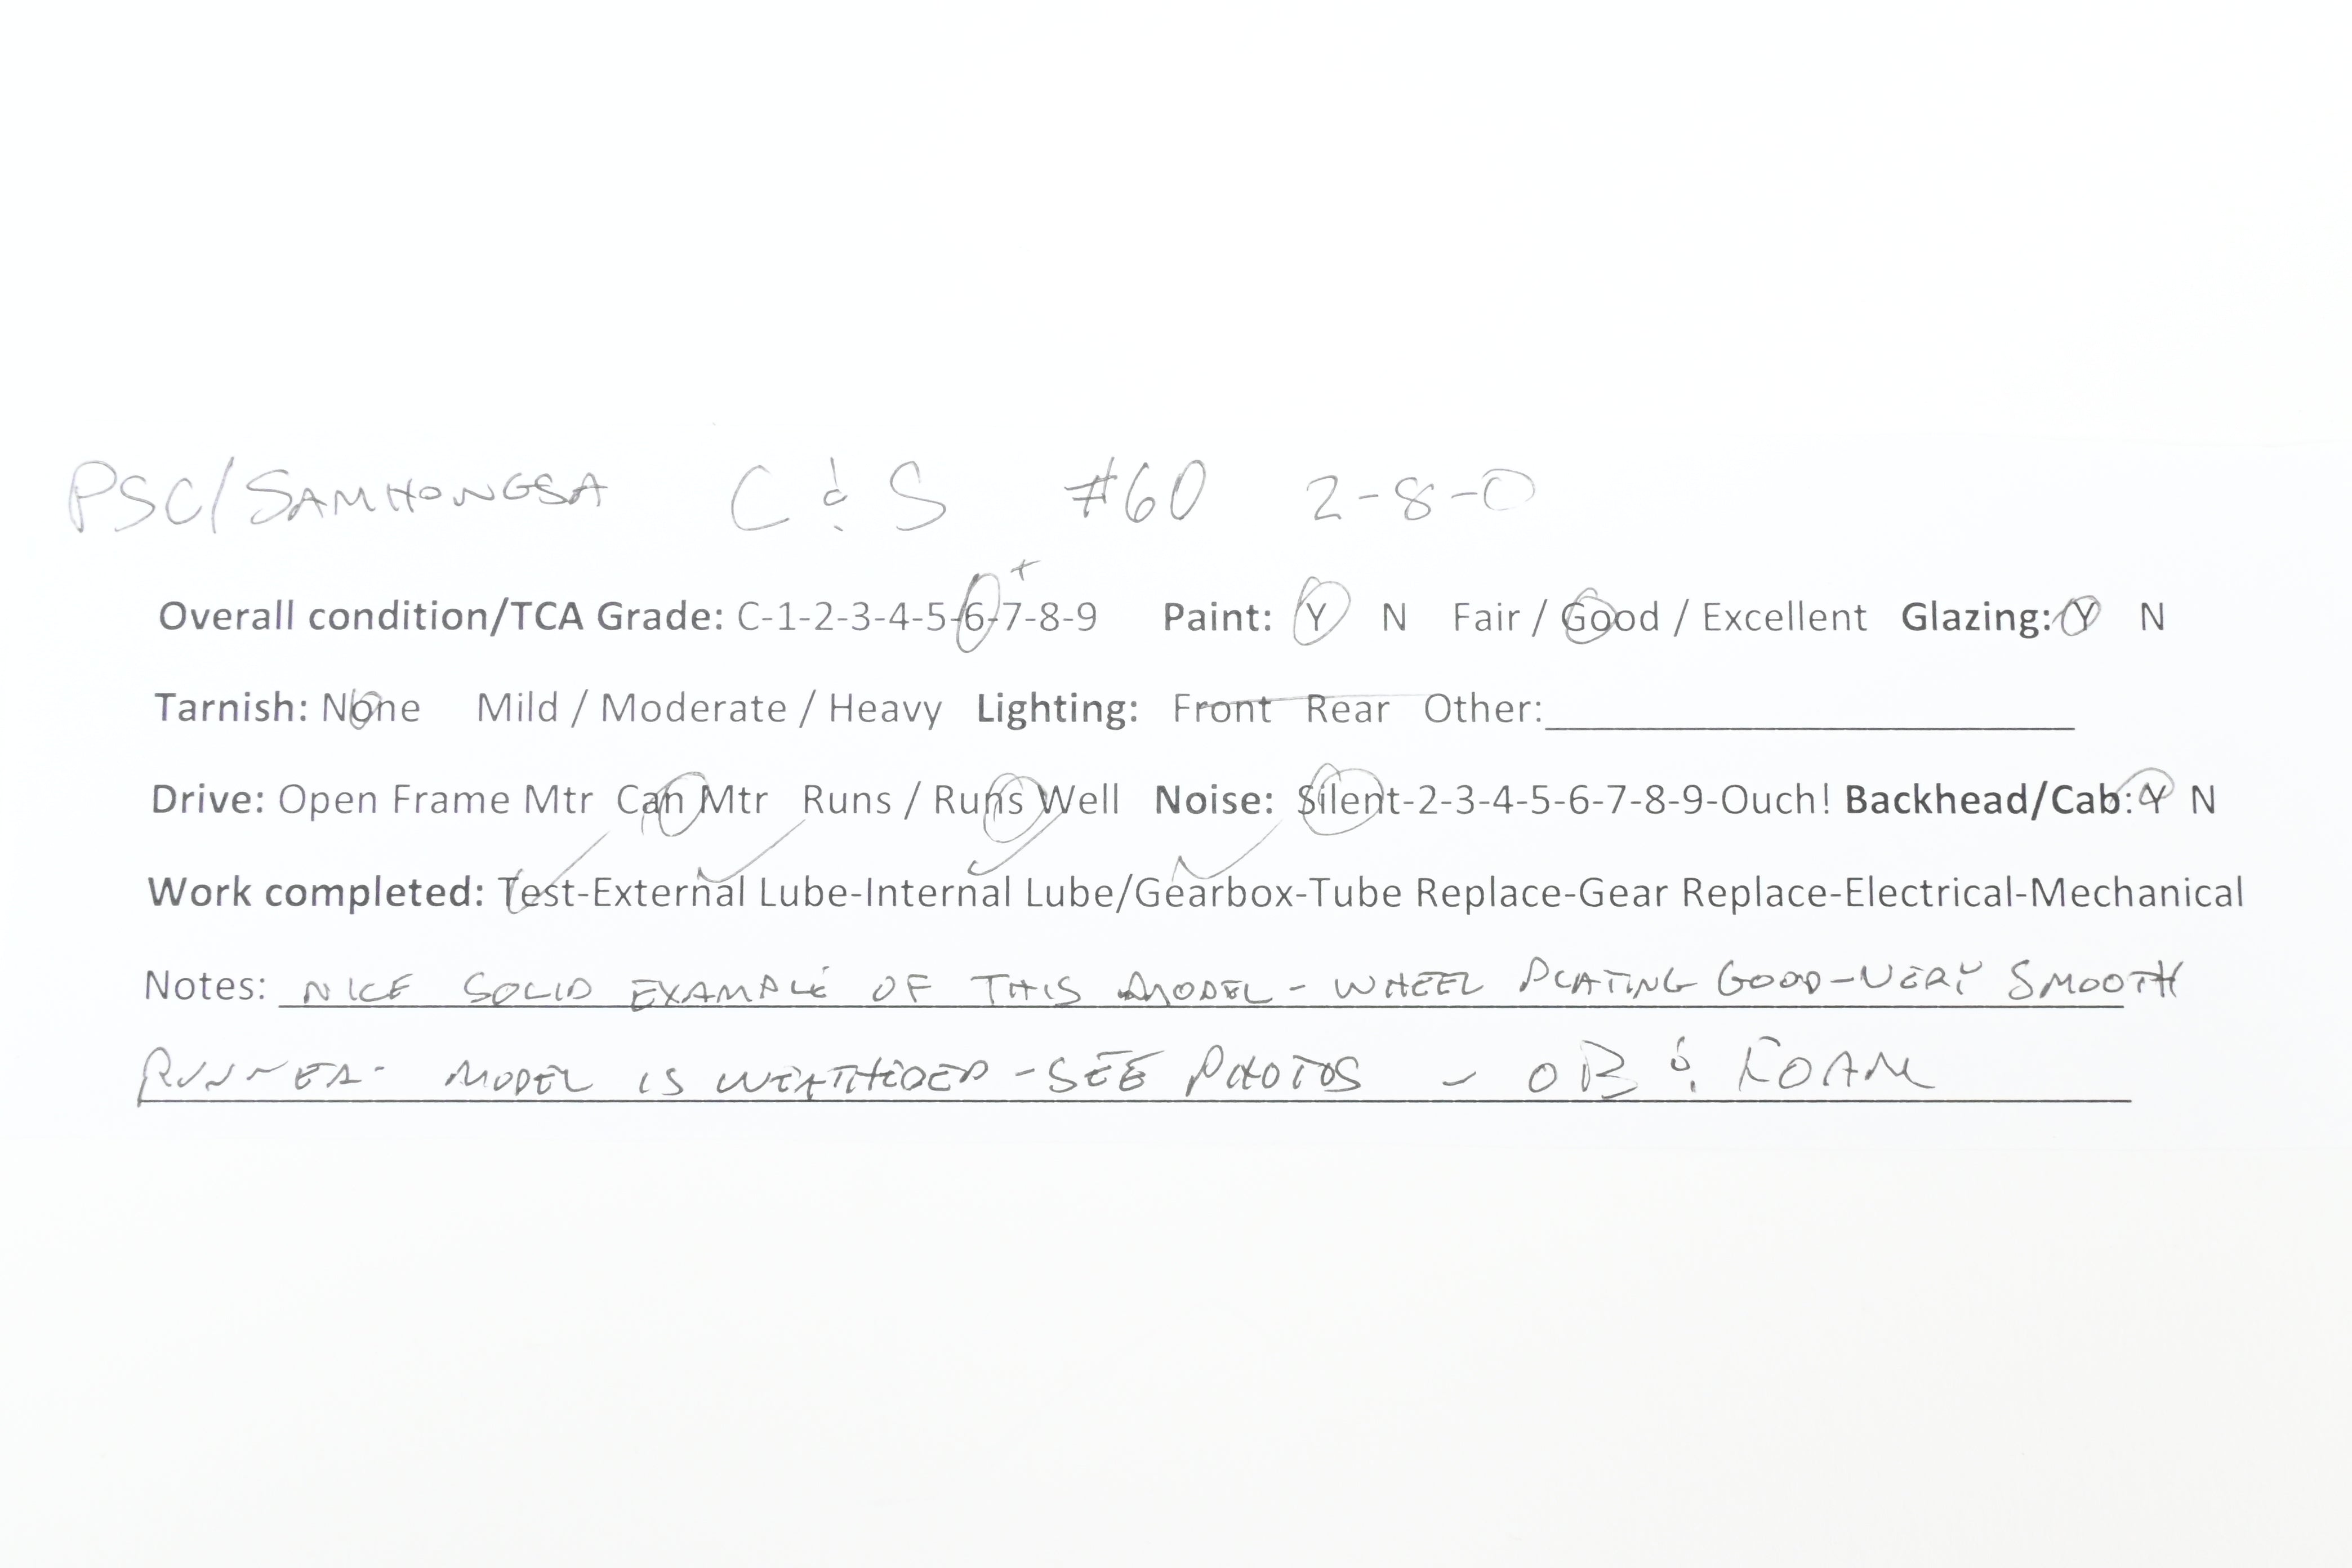 PSC/SAMHONGSA C & S #60 2-8-0
+
Overall condition/TCA Grade: C-1-2-3-4-5-6-7-8-9 Paint: Y N Fair / Good / Excellent Glazing: Y N
Tarnish: None Mild / Moderate / Heavy Lighting: Front Rear Other:
Drive: Open Frame Mtr Can Mtr Runs / Runs Well Noise: Silent-2-3-4-5-6-7-8-9-Ouch! Backhead/Cab: Y N
Work completed: Test-External Lube-Internal Lube/Gearbox-Tube Replace-Gear Replace-Electrical-Mechanical
Notes: NICE SOLID EXAMPLE OF THIS MODEL - WHEEL PLATING GOOD - VERY SMOOTH
RUNNER - MODEL IS WEATHERED - SEE PHOTOS - OB & FOAM